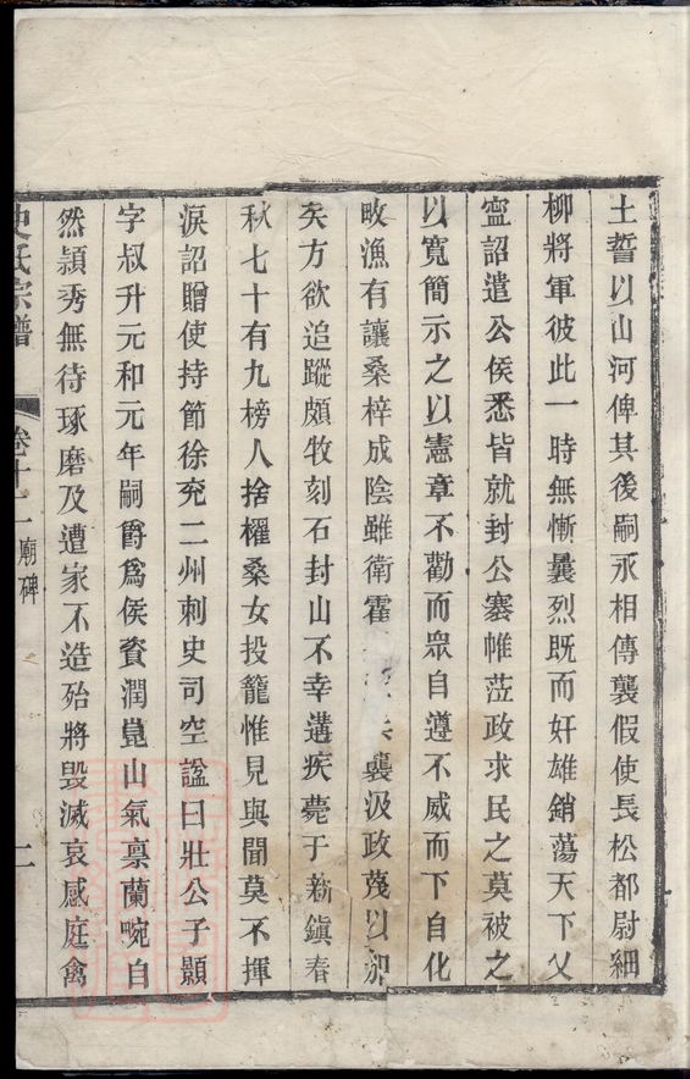 土誓以山河俾其後嗣永相傳襲假使長松都尉細
柳將軍彼此一時無慚曩烈既而奸雄銷蕩天下乂
寍詔遣公侯悉皆就封公褰帷莅政求民之莫被之
以寬簡示之以憲章不勸而眾自遵不威而下自化
畋漁有讓桑梓成陰雖衛霍襄汲政蔑以加
矣方欲追蹤頗牧刻石封山不幸遘疾薨于新鎮春
秋七十有九榜人捨櫂桑女投籠惟見與聞莫不揮
淚詔贈使持節徐兖二州刺史司空諡曰壯公子顥
字叔升元和元年嗣爵爲侯資潤崑山氣禀蘭畹自
然頴秀無待琢磨及遭家不造殆將毀滅哀感庭禽
史氏宗譜 卷十二 廟碑 二